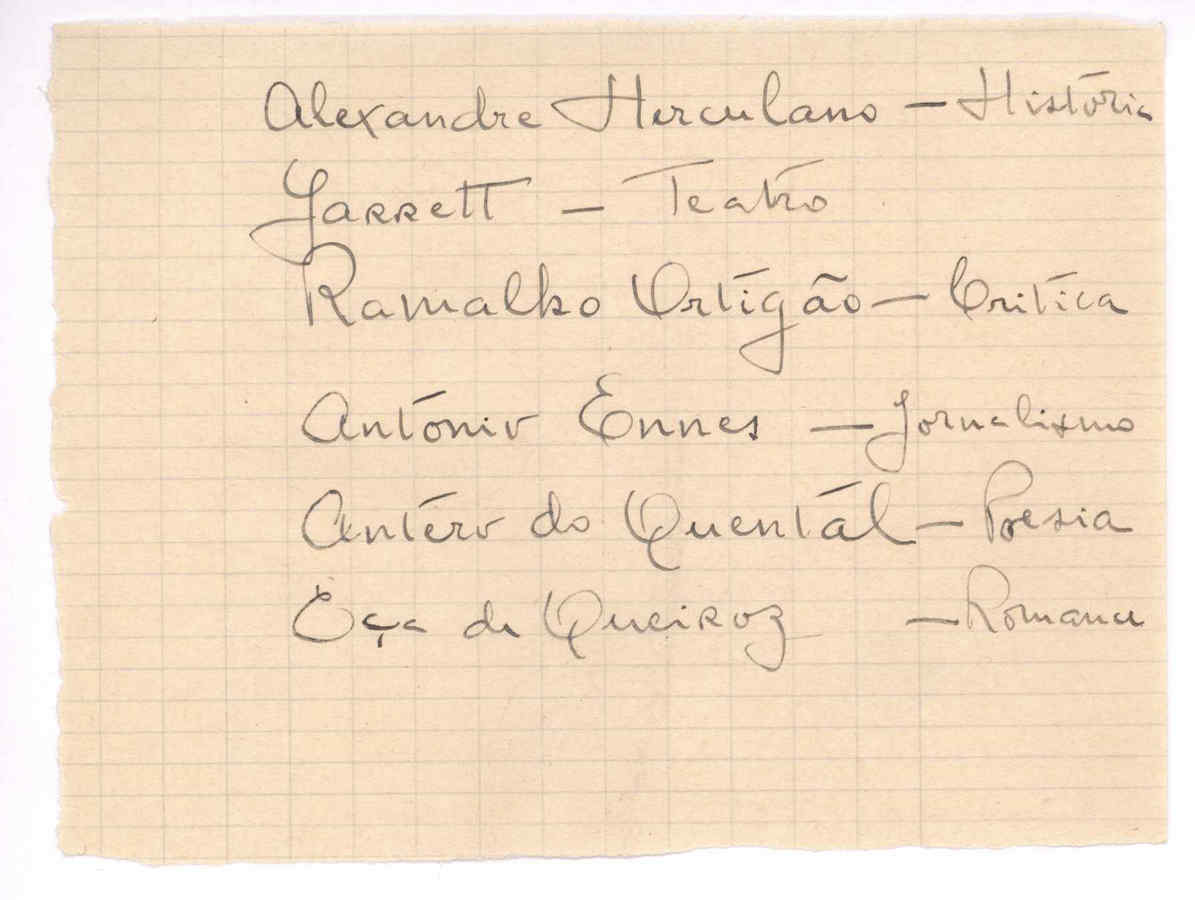 Alexandre Herculano — História
Garrett — Teatro
Ramalho Ortigão — Critíca
António Ennes — Jornalismo
Antéro do Quentál — Poesia
Eça de Queiroz — Romance